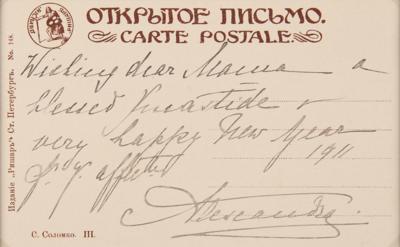 ОТКРЫТОЕ ПИСЬМО.
CARTE POSTALE.
Wishing dear Mama a
blessed Xmastide &
very happy New Year
1911
affte
Alexandra.
Изданіе „Ришаръ“ Ст. Петербургъ. No. 148.
С. Соломко. III.